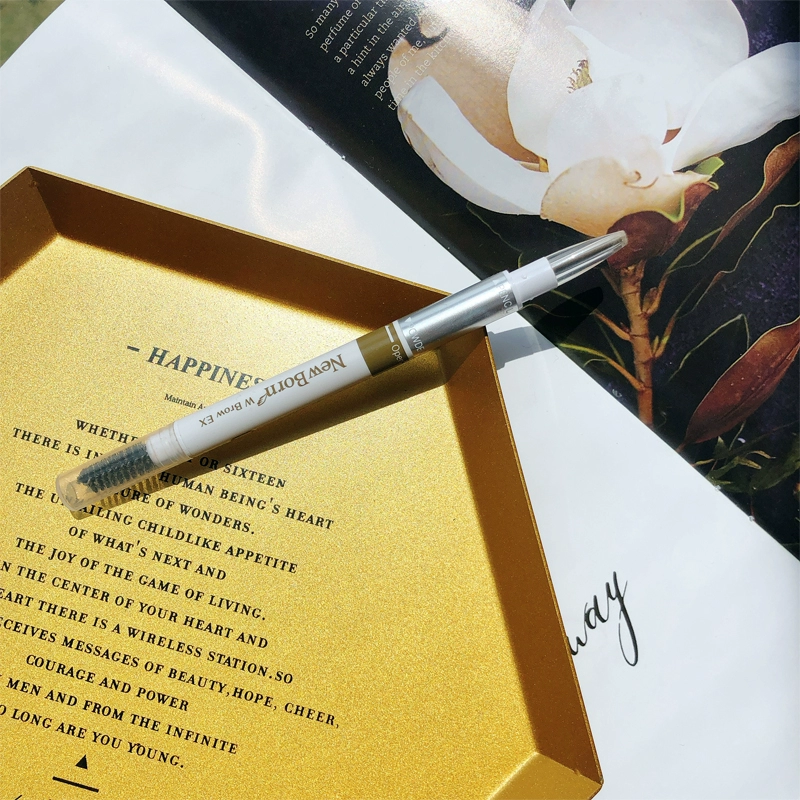 So many
perfume or
a particular
a hint in the air
always wanted
people of
- HAPPINES
Maintain A
WHETHE OR SIXTEEN
THERE IS IN HUMAN BEING'S HEART
URE OF WONDERS.
THE U AILING CHILDLIKE APPETITE
OF WHAT'S NEXT AND
THE JOY OF THE GAME OF LIVING.
N THE CENTER OF YOUR HEART AND
EART THERE IS A WIRELESS STATION.SO
ECEIVES MESSAGES OF BEAUTY,HOPE, CHEER,
COURAGE AND POWER
MEN AND FROM THE INFINITE
O LONG ARE YOU YOUNG.
NewBorn W Brow EX
Ope
way